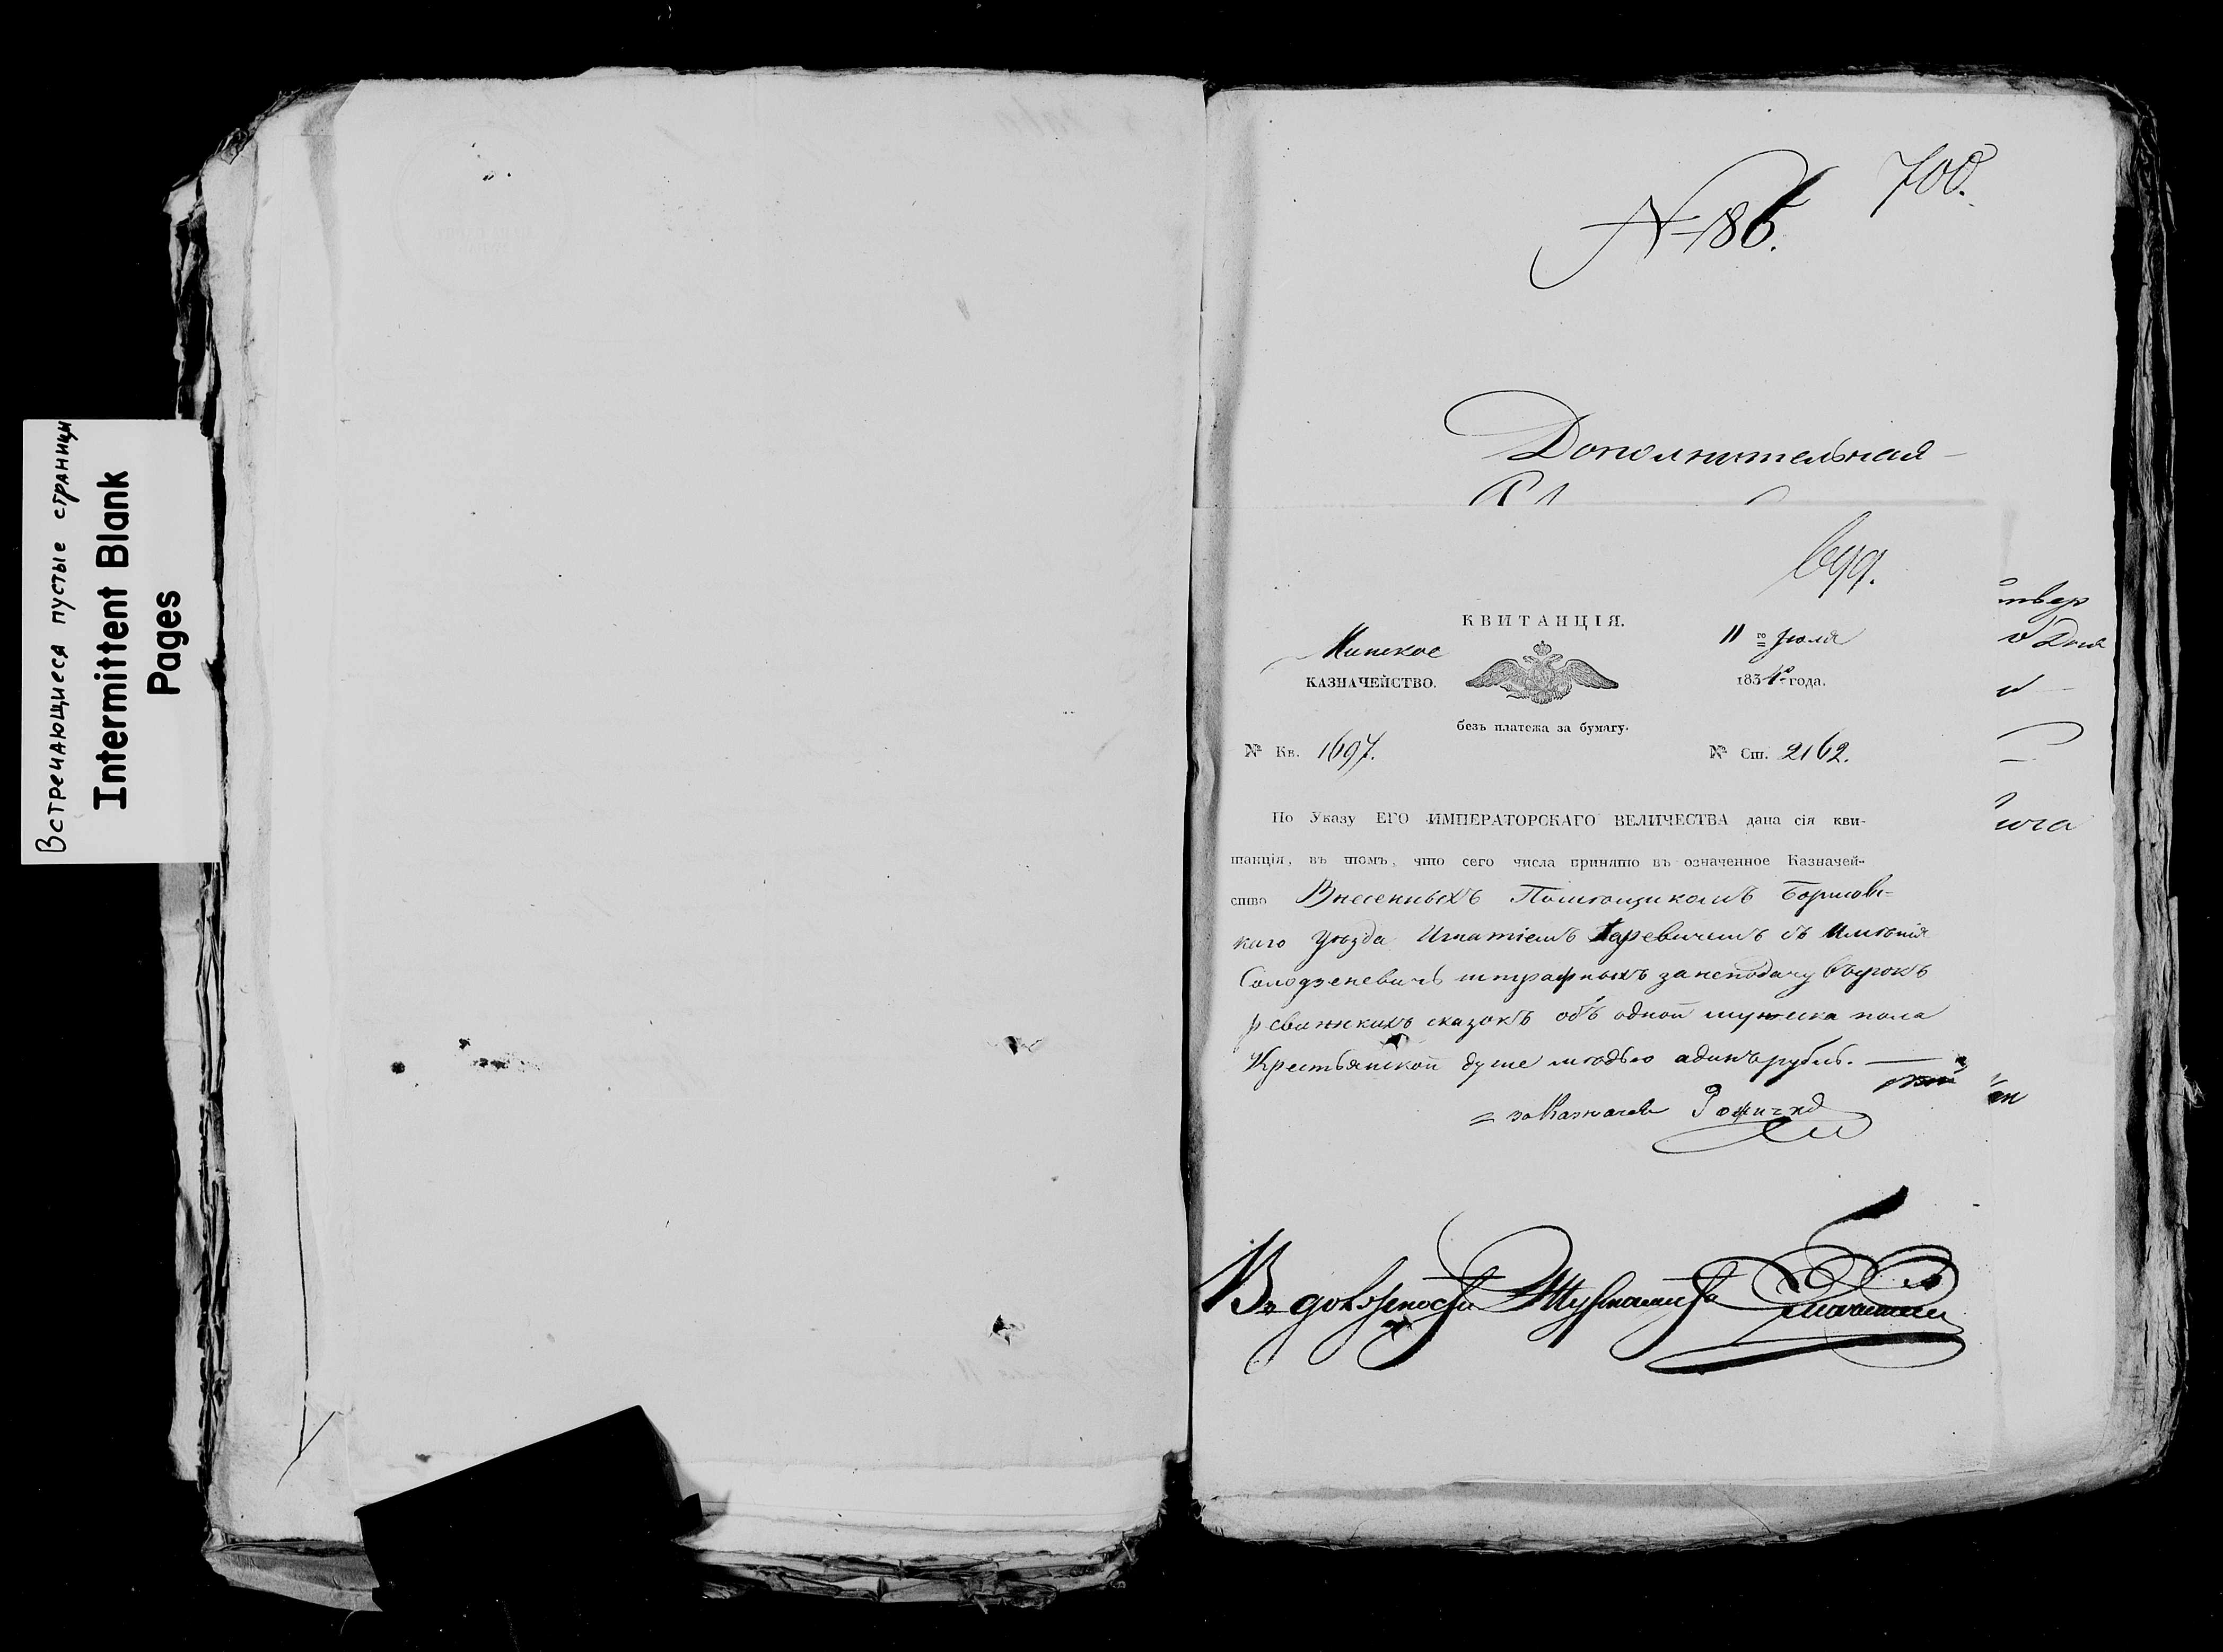 Встречающиеся пустые страницы
Intermittent Blank
Pages
700.
№ 186.
Дополнительная
699.
КВИТАНЦІЯ.
Минское
11го Июля
КАЗНАЧЕЙСТВО.
1834го года.
безъ платежа за бумагу.
№ Кв. 1697.
№ Ст. 2162.
По Указу ЕГО ИМПЕРАТОРСКАГО ВЕЛИЧЕСТВА дана сія кви-
танція, въ томъ, что сего числа принято въ означенное Казначей-
ство Внесенныхъ Помѣщикомъ Борисовс-
каго Уѣзда Игнатіемъ съ Имѣнія
штрафныхъ за неподачу въ срокъ
ревижскихъ сказокъ объ одной мужеска пола
Крестьянской душе мѣдью адинъ рубль.
за Казначея
твер
дня
ига